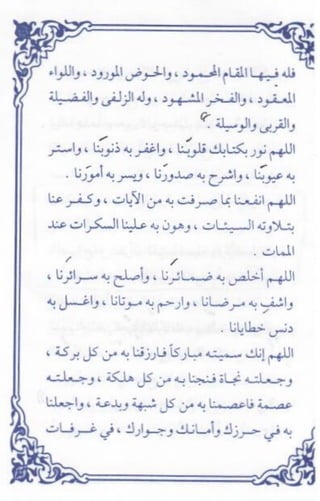 فله فيها المقام المحمود ، والحوض المورود ، واللواء
المعقود ، والفخر المشهود ، وله الزلفى والفضيلة
والقربى والوسيلة
اللهم نور بكتابك قلوبنا ، واغفر به ذنوبنا ، واستر
به عيوبنا ، واشرح به صدورنا ، ويسر به أمورنا .
اللهم انفعنا بما صرفت به من الآيات ، وكفر عنا
بتلاوته السيئات ، وهون به علينا السكرات عند
الممات .
اللهم أخلص به ضمائرنا ، وأصلح به سرائرنا ،
واشف به مرضانا ، وارحم به موتانا ، واغسل به
دنس خطايانا .
اللهم إنك سميته مباركاً فارزقنا به من كل بركة ،
وجعلته نجاة فنجنا به من كل هلكة ، وجعلته
عصمة فاعصمنا به من كل شبهة وبدعة ، واجعلنا
به في حرزك وأمانك وجوارك ، في غرفات